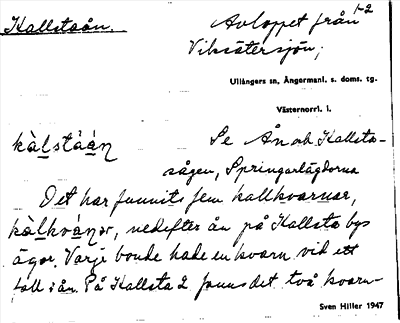 Kallstaån.
Avloppet från 1-2
Viksätersjön;
Ullångers sn, Ångermanl. s. doms. tg.
Västernorrl. l.
kàlståán
Se Ån och Kallsta-
sågen, Springarlägdorna
Det har funnits fem kallkvarnar,
kàlkvánor, nedefter ån på Kallsta bys
ägor. Varje bonde hade en kvarn vid ett
fall i ån. På Kallsta 2 fanns det två kvarn-
Sven Hiller 1947